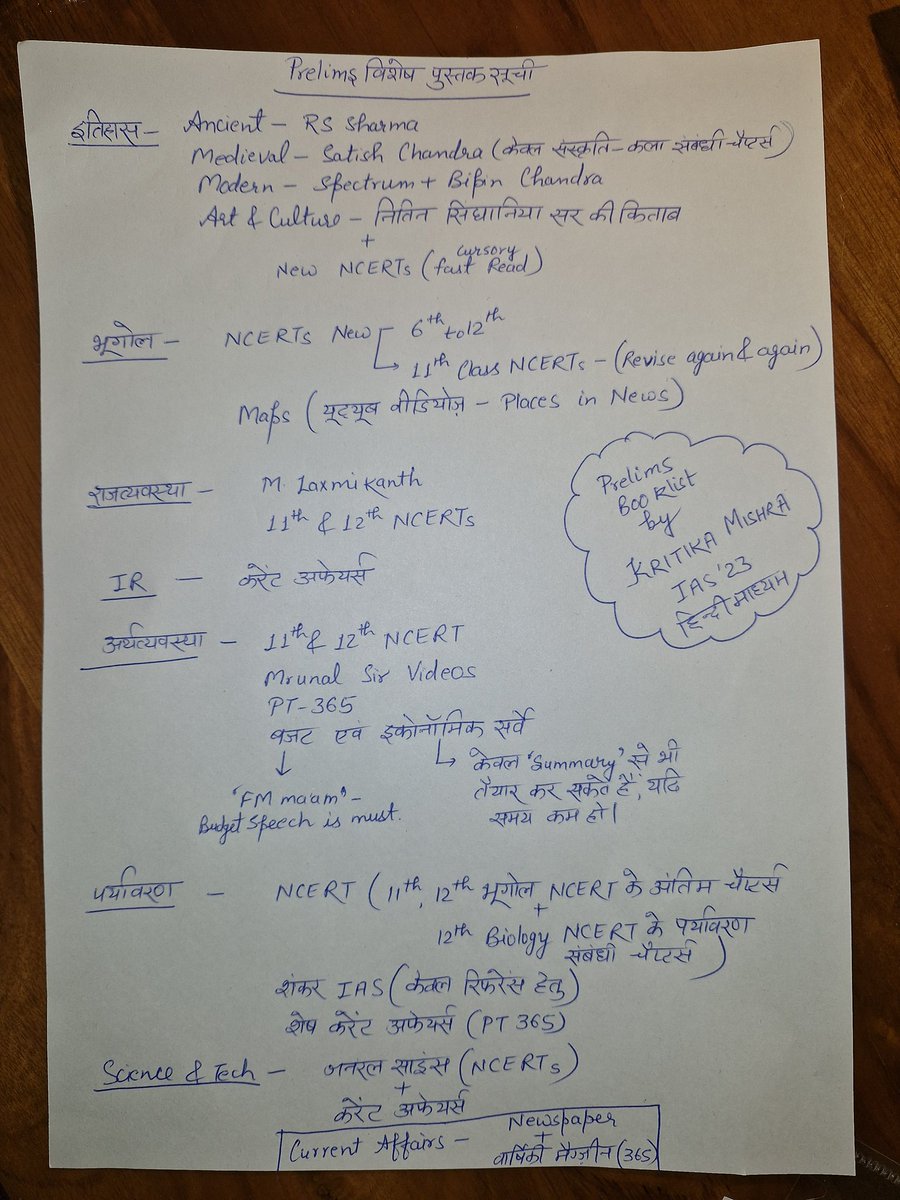 Prelims विशेष पुस्तक सूची
इतिहास - Ancient - RS Sharma
Medieval - Satish Chandra (केवल संस्कृति - कला संबंधी चैप्टर्स)
Modern - Spectrum + Bipin Chandra
Art & Culture - नितिन सिंघानिया सर की किताब
+
New NCERTs (cursory fast Read)
भूगोल - NCERTs New 6th to 12th
11th Class NCERTs - (Revise again & again)
Maps (यूट्यूब वीडियोज़ - Places in News)
राजव्यवस्था - M. Laxmikanth
11th & 12th NCERTs
IR - करेंट अफेयर्स
Prelims
Booklist
by
KRITIKA MISHRA
IAS'23
हिन्दी माध्यम
अर्थव्यवस्था - 11th & 12th NCERT
Mrunal Sir Videos
PT-365
बजट एवं इकोनॉमिक सर्वे
'FM ma'am' -
Budget Speech is must.
केवल 'Summary' से भी
तैयार कर सकते हैं, यदि
समय कम हो।
पर्यावरण - NCERT (11th, 12th भूगोल NCERT के अंतिम चैप्टर्स
+
12th Biology NCERT के पर्यावरण
संबंधी चैप्टर्स)
शंकर IAS (केवल रिफरेंस हेतु)
शेष करेंट अफेयर्स (PT 365)
Science & Tech - जनरल साइंस (NCERTs)
+
करेंट अफेयर्स
Current Affairs - Newspaper
+
वार्षिकी मैग्ज़ीन (365)